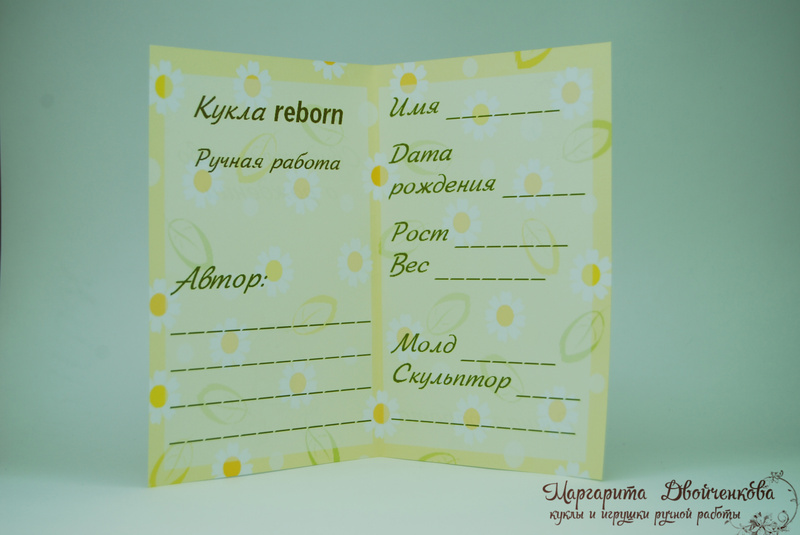 Кукла reborn
Ручная работа
Автор:
Имя
Дата
рождения
Рост
Вес
Молд
Скульптор
Маргарита Двойченкова
куклы и игрушки ручной работы